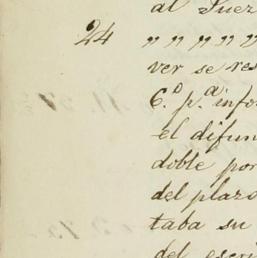 al Juez
24 " " " " "
ver se res
6.º p.ª info
el difun
doble por
del plazo
taba su
del escri